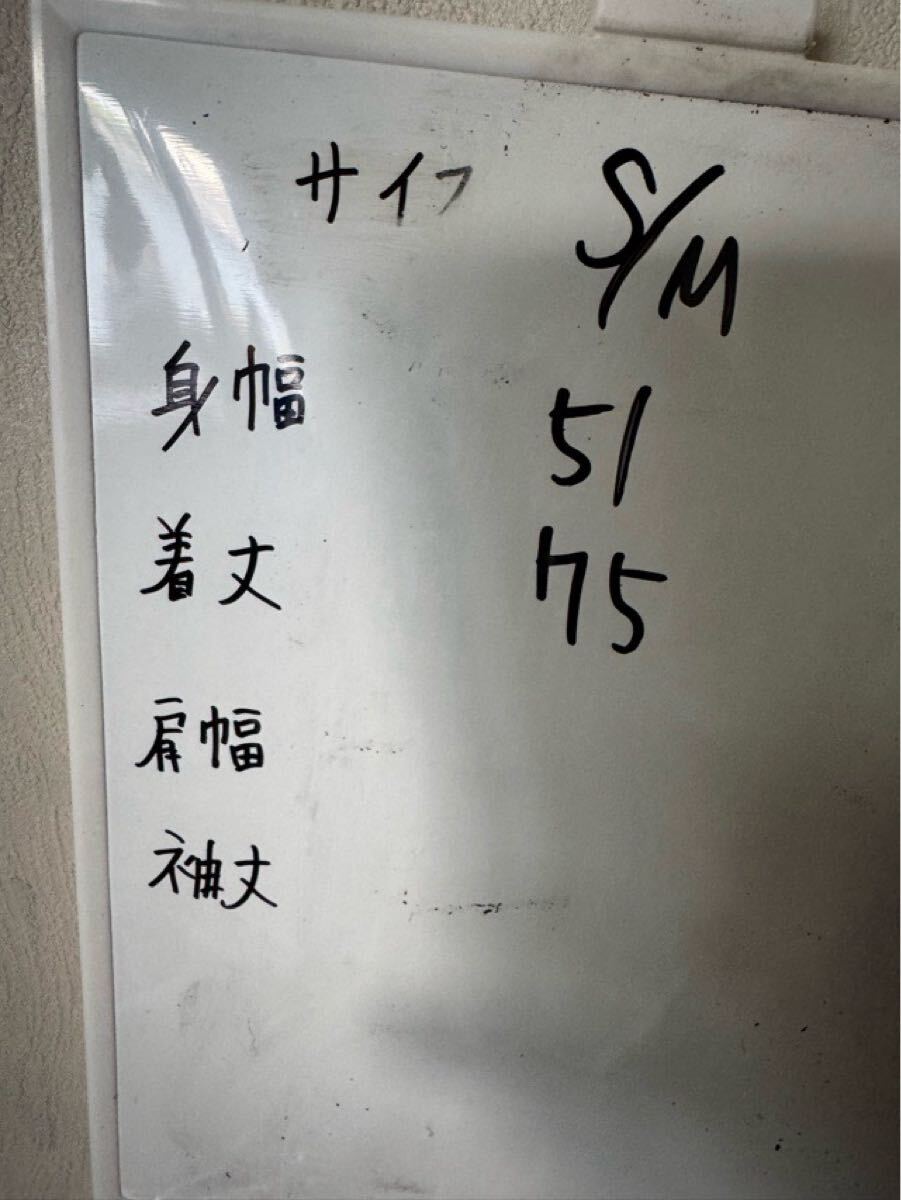 サイフ S/M
身幅 51
着丈 75
肩幅
袖丈